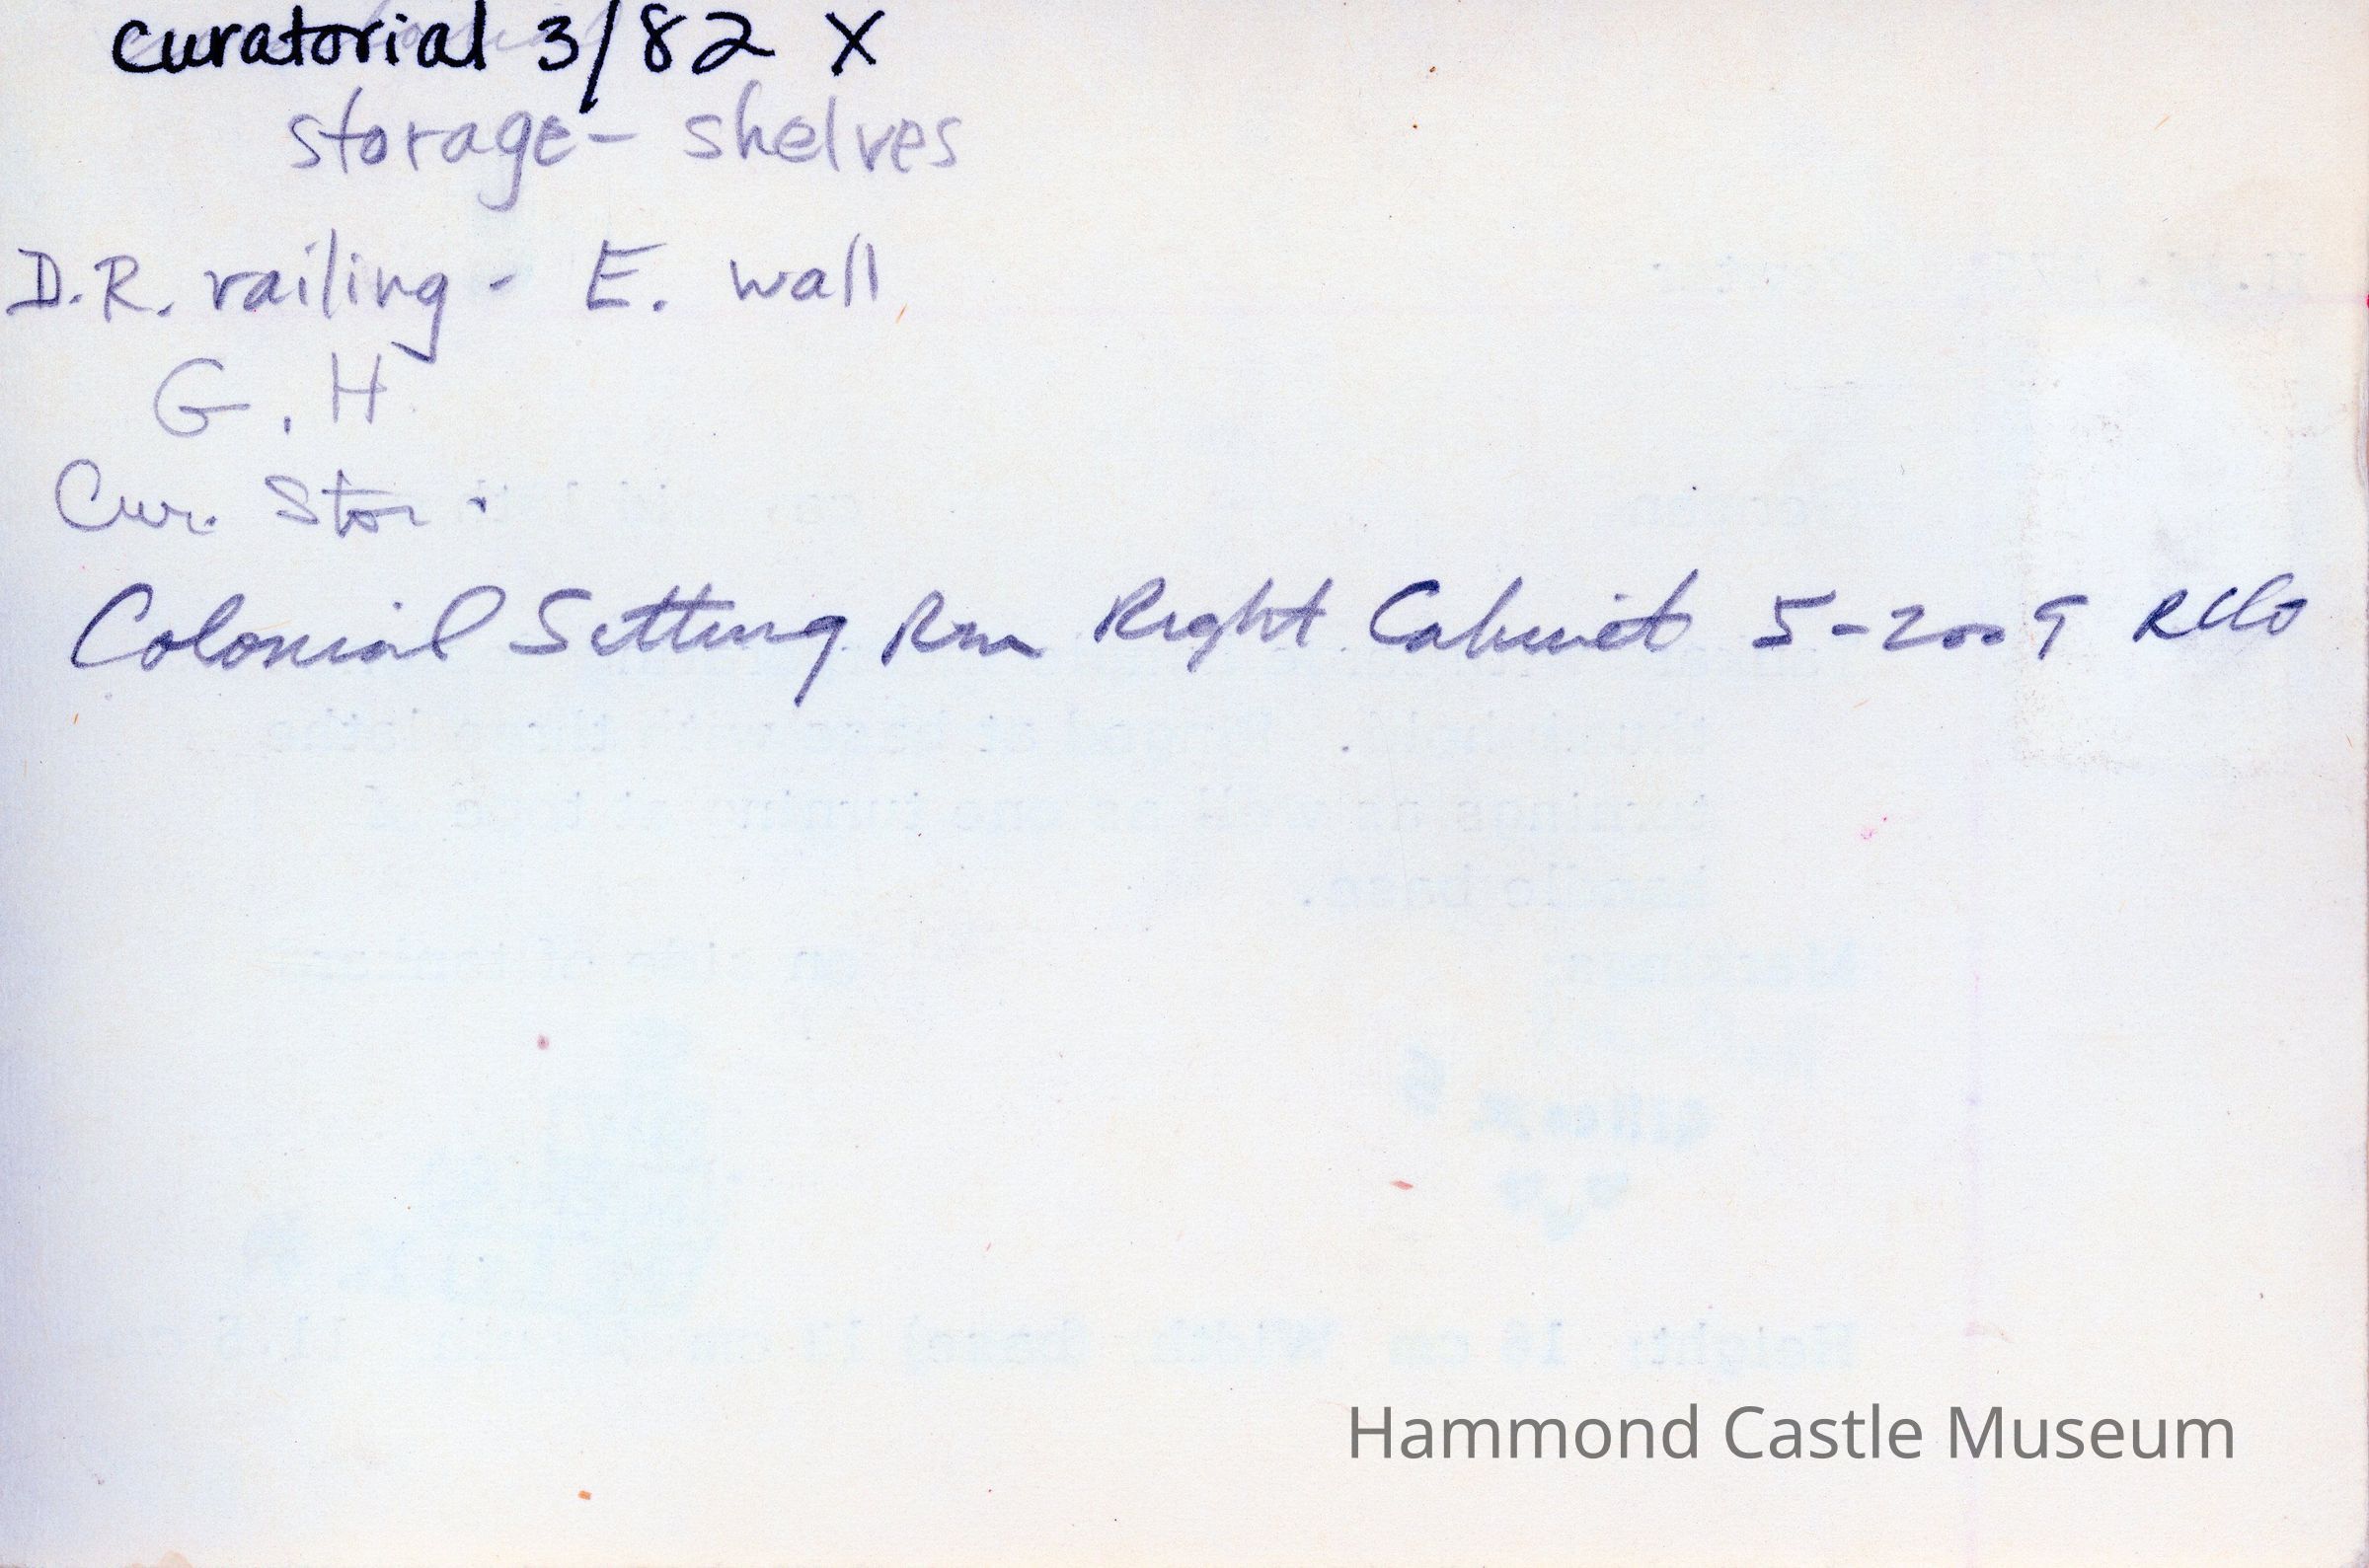 curatorial 3/82 X
storage - shelves
D.R. railing - E. wall
G.H
Cur. Stor.
Colonial Setting Rm Right Cabinet 5-2009
Hammond Castle Museum